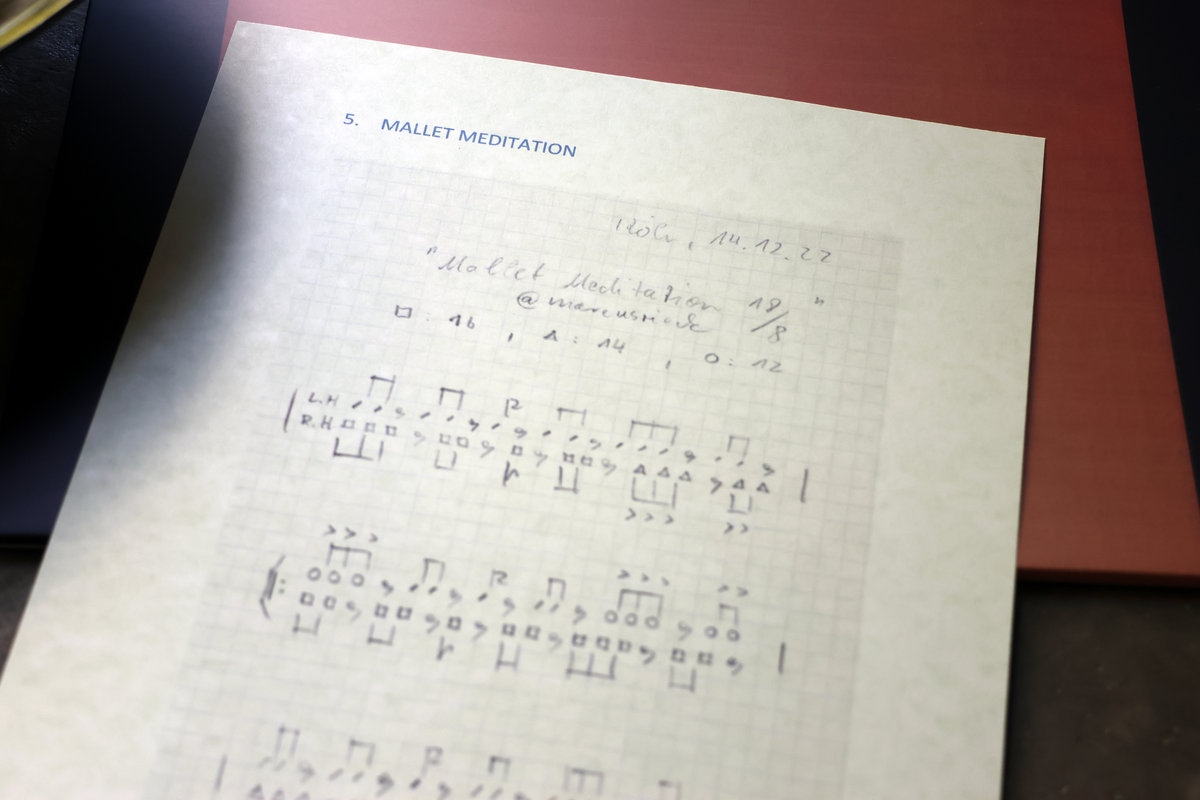 5. MALLET MEDITATION
Köln, 14.12.22
"Mallet Meditation 18/8"
□ : 16 , △ : 14 , ○ : 12
L.H
R.H